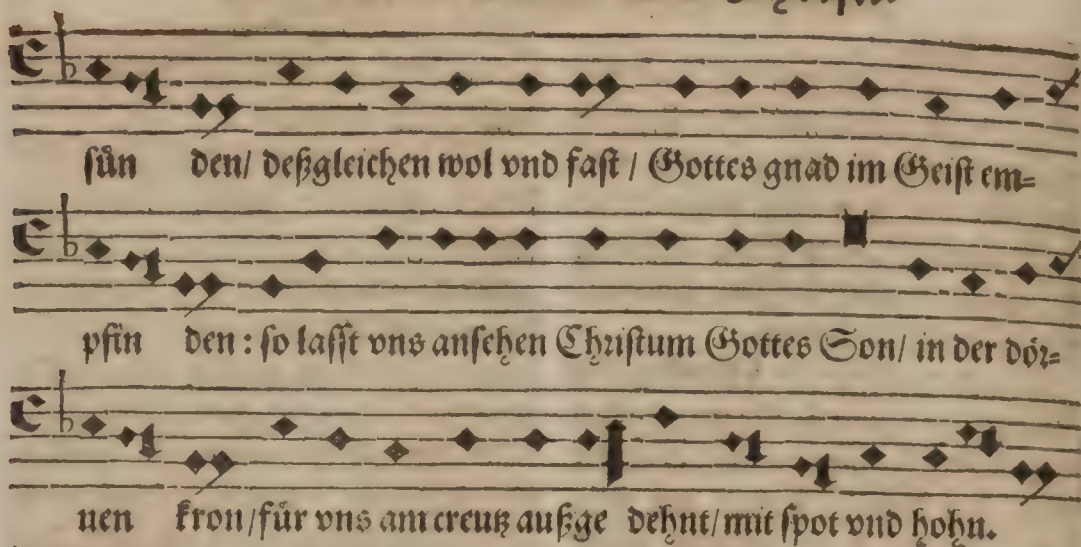 sůn den/ deßgleichen wol vnd fast / Gottes gnad im Geist em=
pfin den: so lasst vns ansehen Christum Gottes Son/ in der dör=
nen kron/für vns am creutz außge dehnt/mit spot vnd hohn.